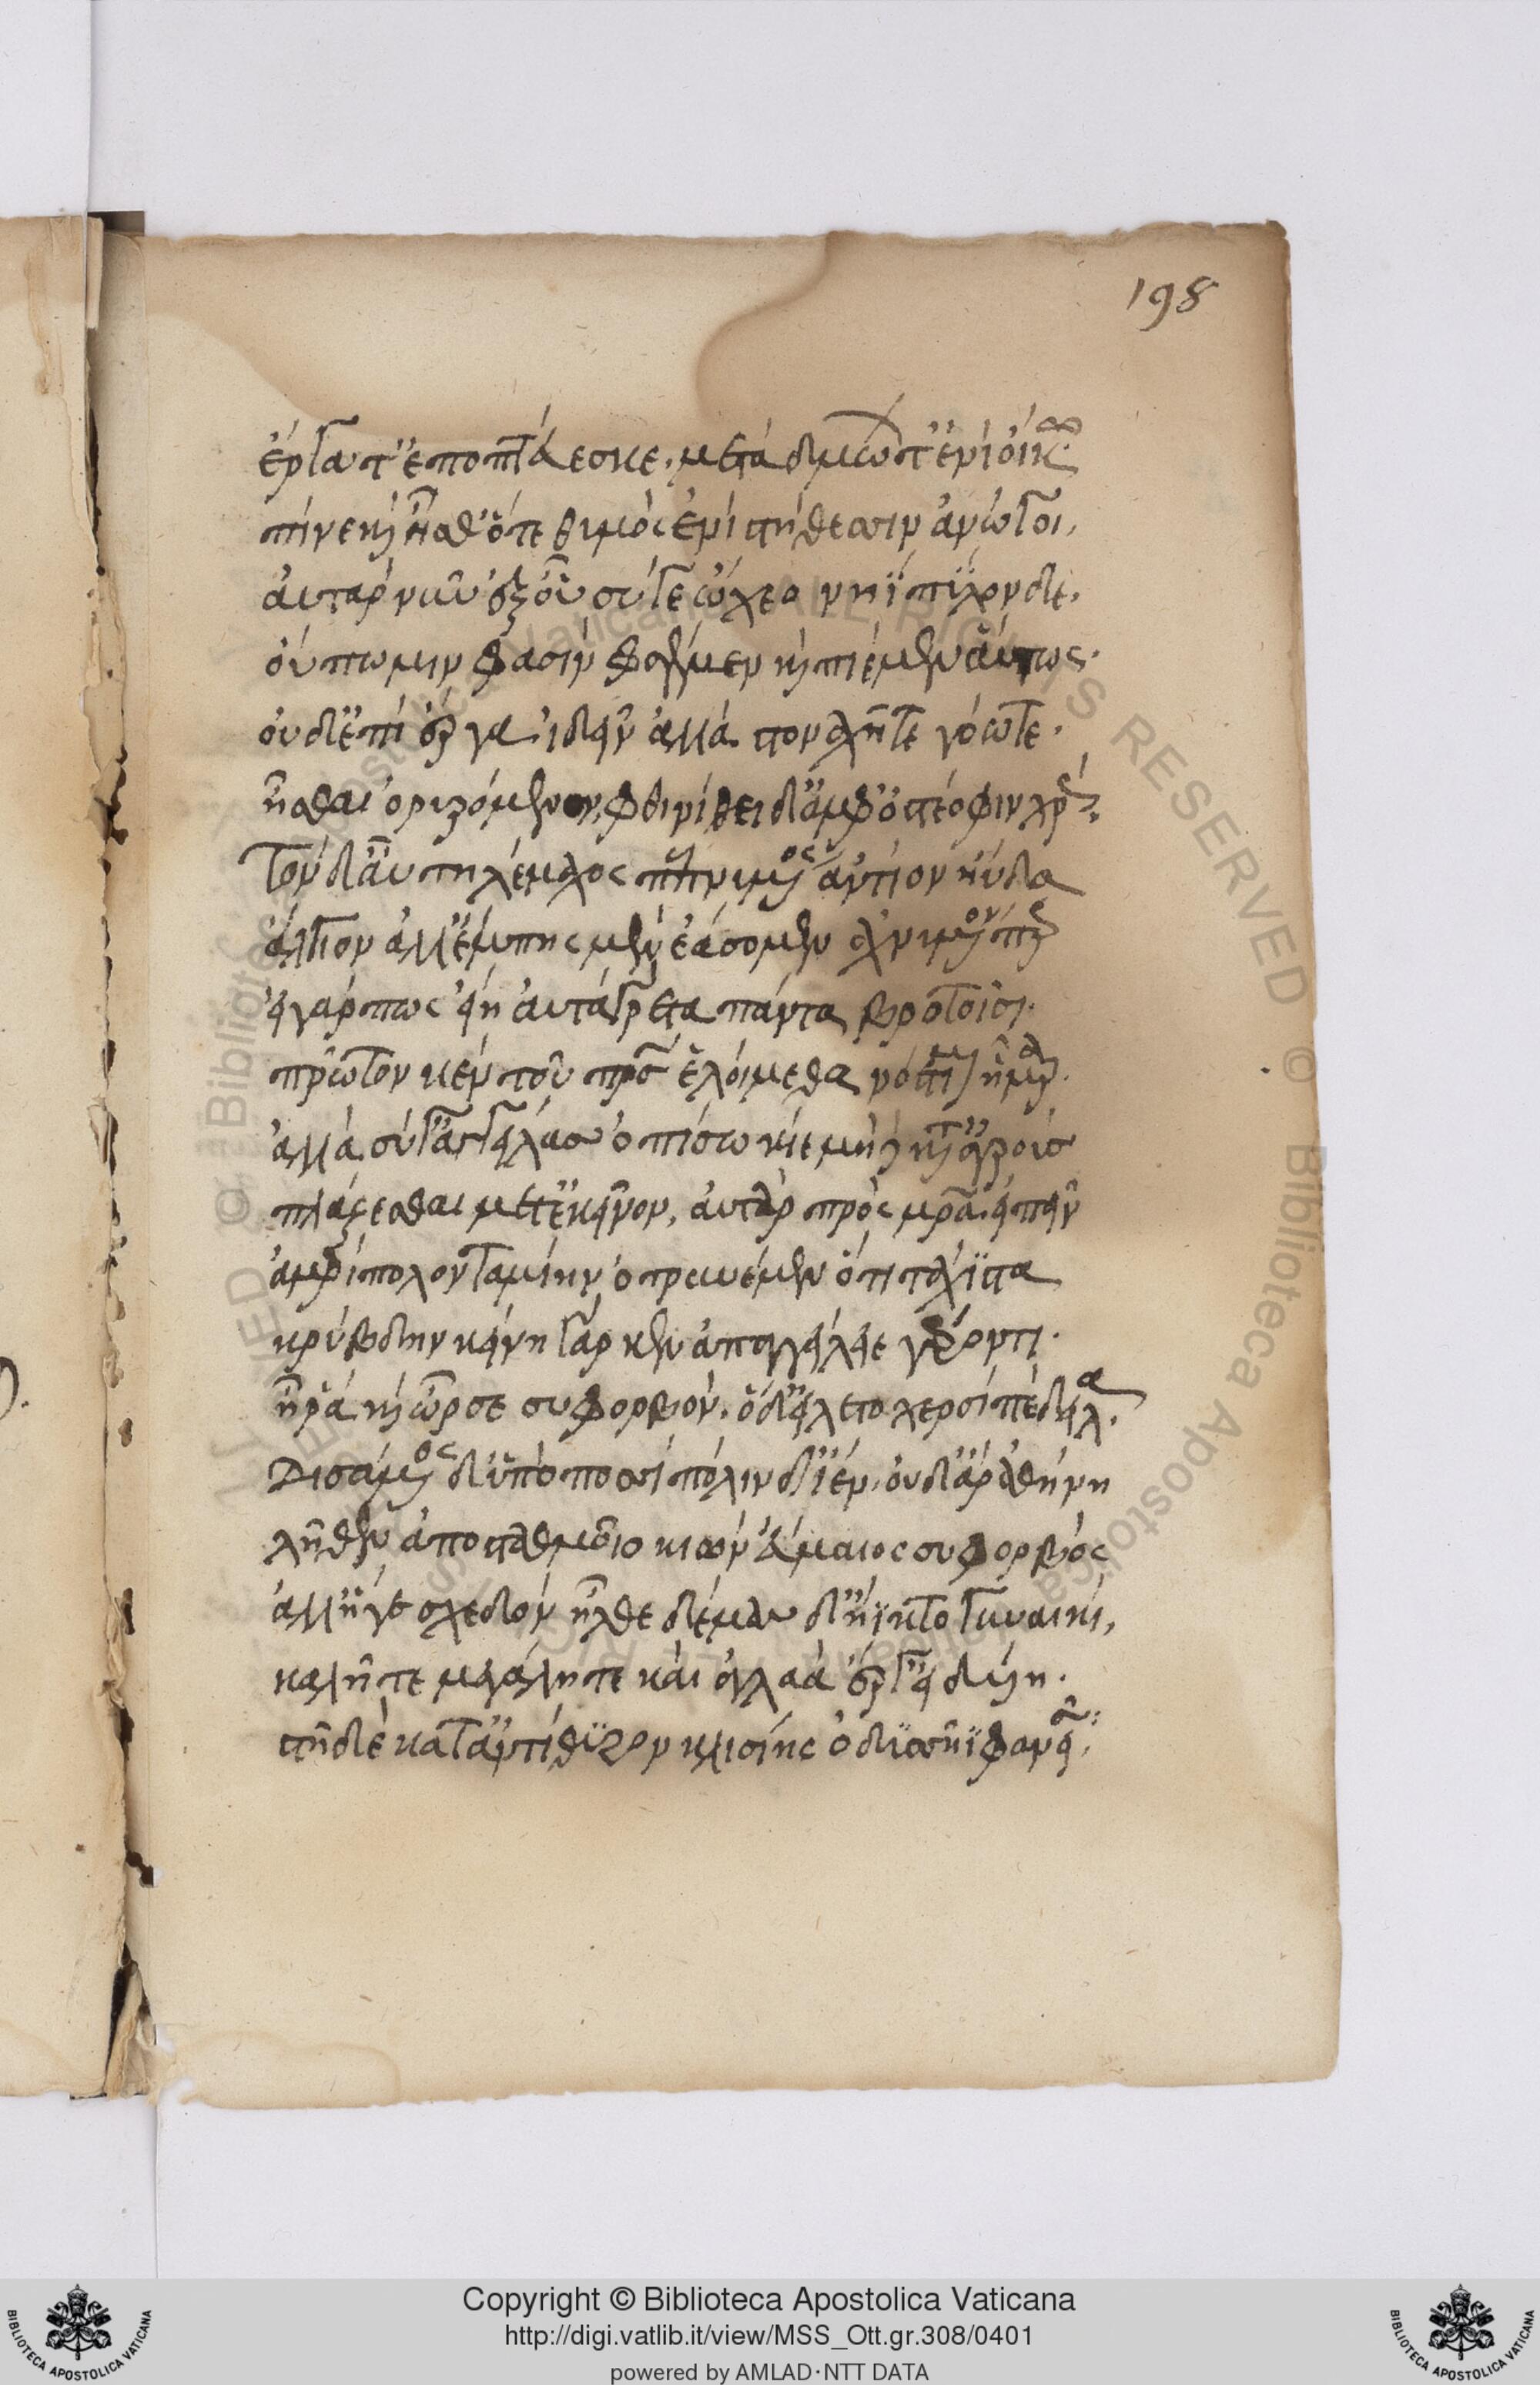 198
ἔργα τ' ἐποπτεύεσκε. μετὰ δμώων τ' ἐνὶ οἴκω
πίνε καὶ ἦσθ' ὅτε θυμὸς ἐνὶ στήθεσσιν ἀνώγοι,
αὐτὰρ νῦν ἐξ οὗ σύ γε ὤχεο νηῒ πύλον δε,
οὔπω μιν φασὶν φαγέμεν καὶ πιέμεν αὔτως.
οὐδ' ἐπὶ ἔργα ἰδεῖν ἀλλὰ στοναχῆ τε γόω τε.
ἧσται ὀδυρόμενος, φθινύθει δ' ἀμφ' ὀστεόφιν χρώς.
Τὸν δ' αὖ τηλέμαχος πεπνυμένος ἀντίον ηὔδα
ἄλγιον ἀλλ' ἔμπης μὲν ἐάσομεν ἀχνύμενόν περ
εἰ γάρ πως εἴη αὐτάγρετα πάντα βροτοῖσι.
πρῶτον κεν τοῦ πρς ἑλοίμεθα νόστιμον ἦμαρ.
ἀλλὰ σύ γ' ἀγγείλας ὀπίσω κίε μὴ δὲ κατ' ἀγροὺς
πλάζεσθαι μετ' ἐκεῖνον, αὐτὰρ πρὸς μρα εἰπεῖν
ἀμφίπολον ταμίην ὀτρυνέμεν ὅτι τάχιστα
κρύβδην κείνη γάρ κεν ἀπαγγείλειε γέροντι.
ἦ ῥά καὶ ὦρσε συφορβόν. ὁ δ' εἵλετο χερσὶ πέδιλα.
Δησάμενος δ' ὑπὸ ποσσὶ πόλιν δ' ἴεν. οὐδ' ἄρ' ἀθήνη
λῆθεν ἀπὸ σταθμοῖο κιὼν εὔμαιος συφορβός
ἀλλ' ἥγε σχεδὸν ἦλθε δέμας δ' ἤϊκτο γυναικί,
καλῆ τε μεγάλη τε καὶ ἀγλαὰ ἔργ' εἰδυίη.
στῆ δὲ κατ' ἀντίθυρον κλισίης ὀδυσῆϊ φανεῖσα.
Copyright © Biblioteca Apostolica Vaticana
http://digi.vatlib.it/view/MSS_Ott.gr.308/0401
powered by AMLAD·NTT DATA